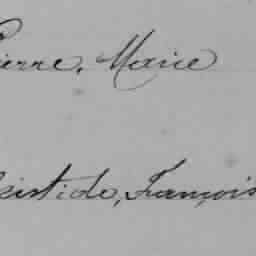 Pierre, Marie
Aristide, François